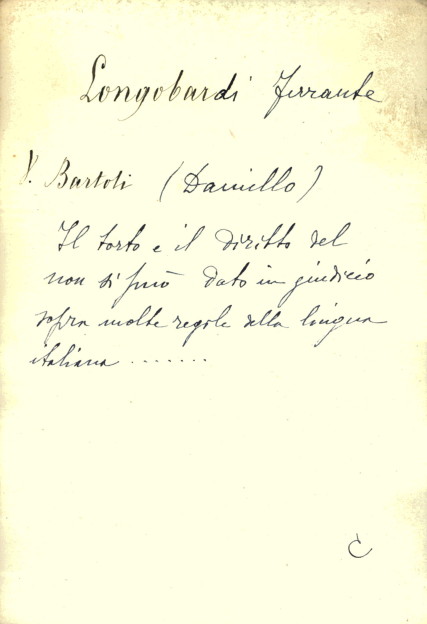 Longobardi Ferrante
V. Bartoli (Daniello)
Il torto e il diritto del
non si può dato in giudicio
sopra molte regole della lingua
italiana .......
C